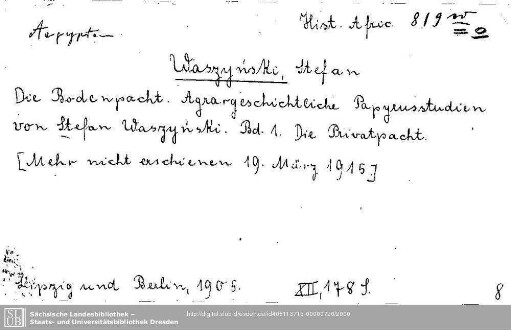 Aegypten
Hist. Afric. 819
Waszyński, Stefan
Die Bodenpacht. Agrargeschichtliche Papyrusstudien
von Stefan Waszyński. Bd. 1. Die Privatpacht.
[Mehr nicht erschienen 19. März 1915]
Leipzig und Berlin, 1905.
XII, 178 S.
8
Sächsische Landesbibliothek –
Staats- und Universitätsbibliothek Dresden